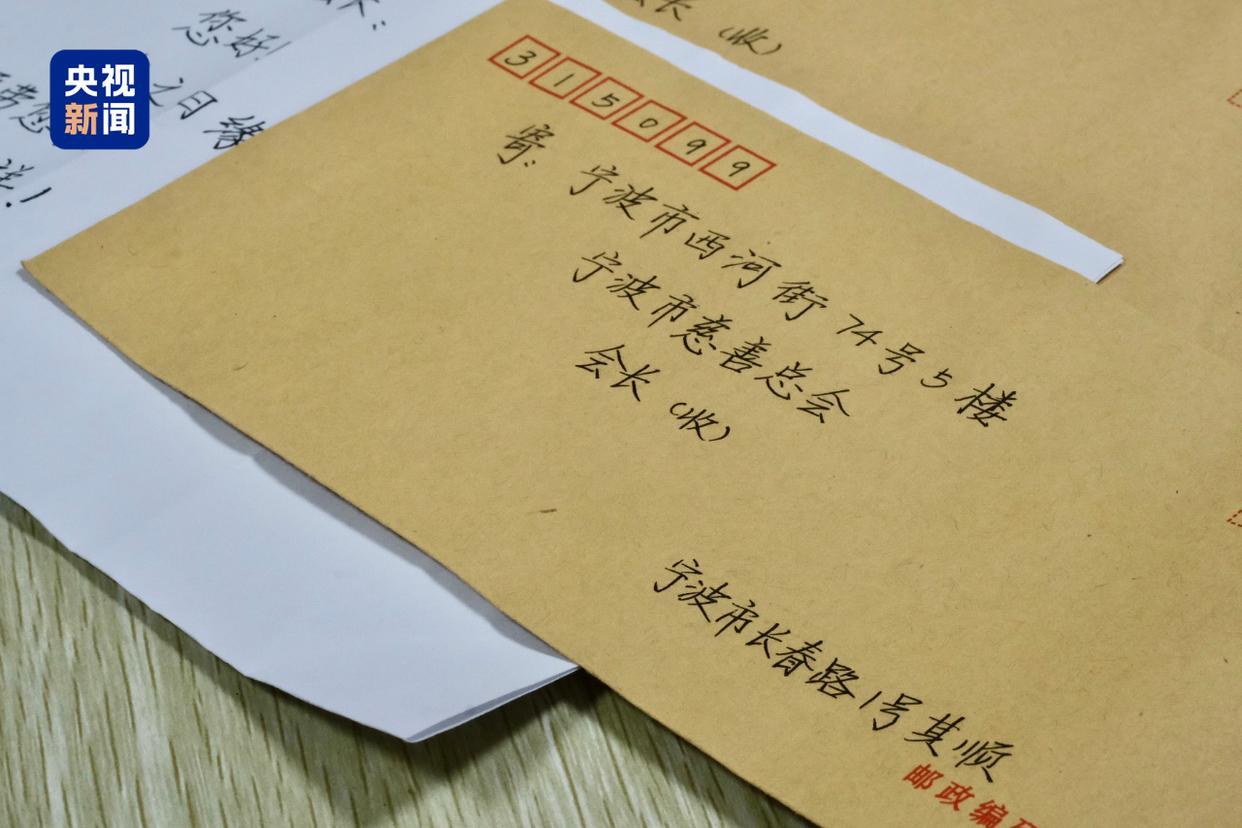 央视
新闻
您好!
之日
祥!
长(收)
315099
寄:
宁波市西河街74号5楼
宁波市慈善总会
会长(收)
宁波市长春路1号其顺
邮政编